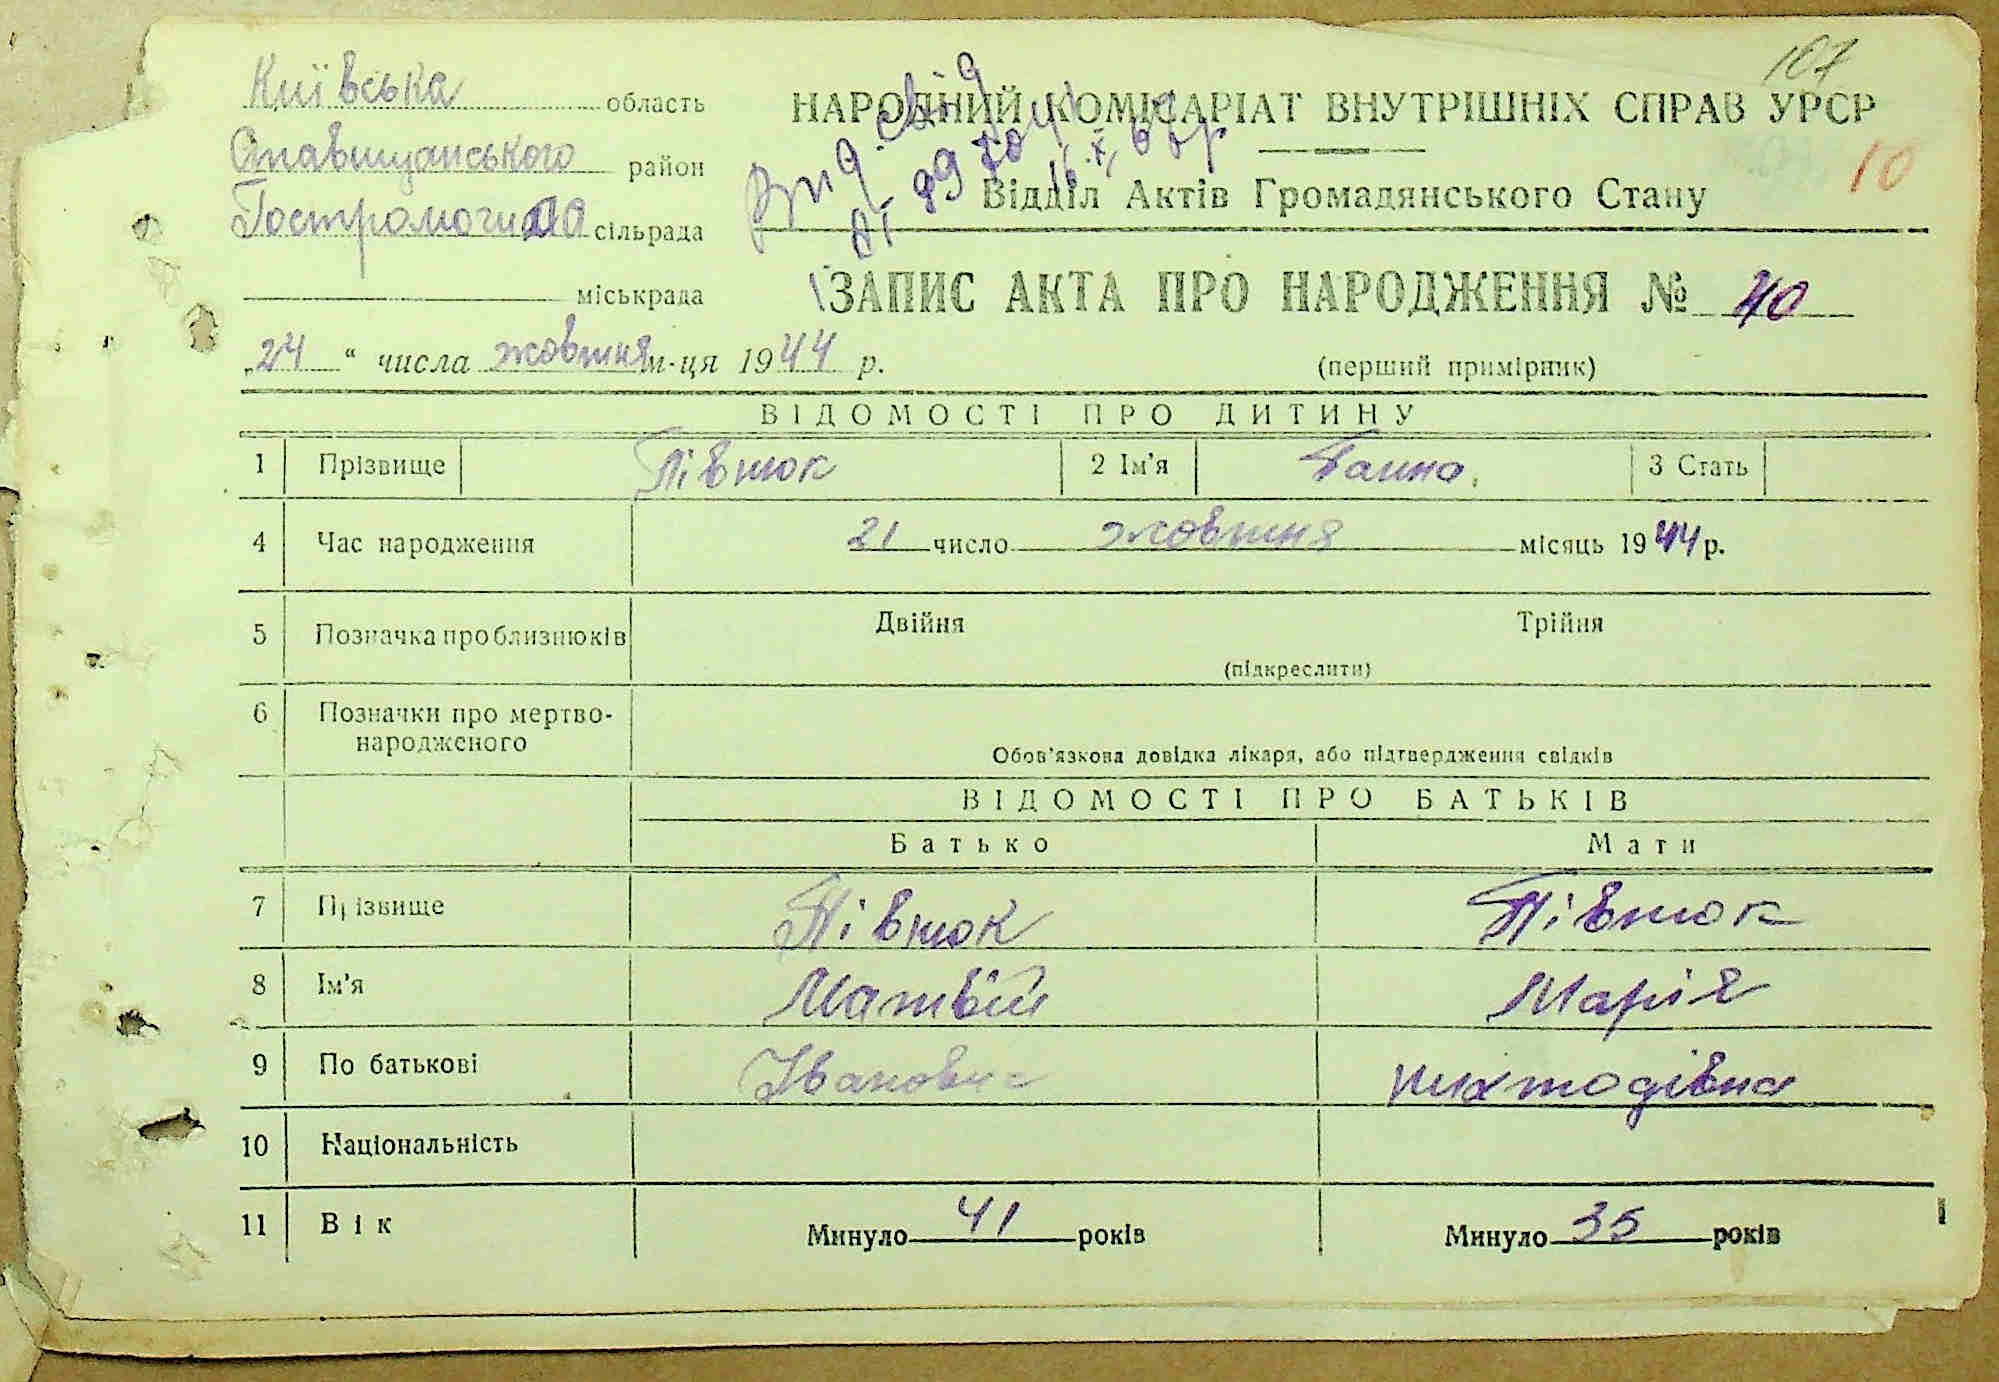 107
Київська область
НАРОДНИЙ КОМІСАРІАТ ВНУТРІШНІХ СПРАВ УРСР
Ставищанського район
10
Відділ Актів Громадянського Стану
Гостромогила сільрада
міськрада
ЗАПИС АКТА ПРО НАРОДЖЕННЯ № 40
„24 “ числа жовтня м-ця 1944 р.
(перший примірник)
ВІДОМОСТІ ПРО ДИТИНУ
1 Прізвище Півнюк 2 Ім'я Ганна. 3 Стать
4 Час народження 21 число жовтня місяць 1944 р.
5 Позначка про близнюків Двійня Трійня
(підкреслити)
6 Позначки про мертво-
народженого
Обов'язкова довідка лікаря, або підтвердження свідків
ВІДОМОСТІ ПРО БАТЬКІВ
Батько Мати
7 Прізвище Півнюк Півнюк
8 Ім'я Матвій Марія
9 По батькові
10 Національність
11 Вік Минуло 41 років Минуло 35 років